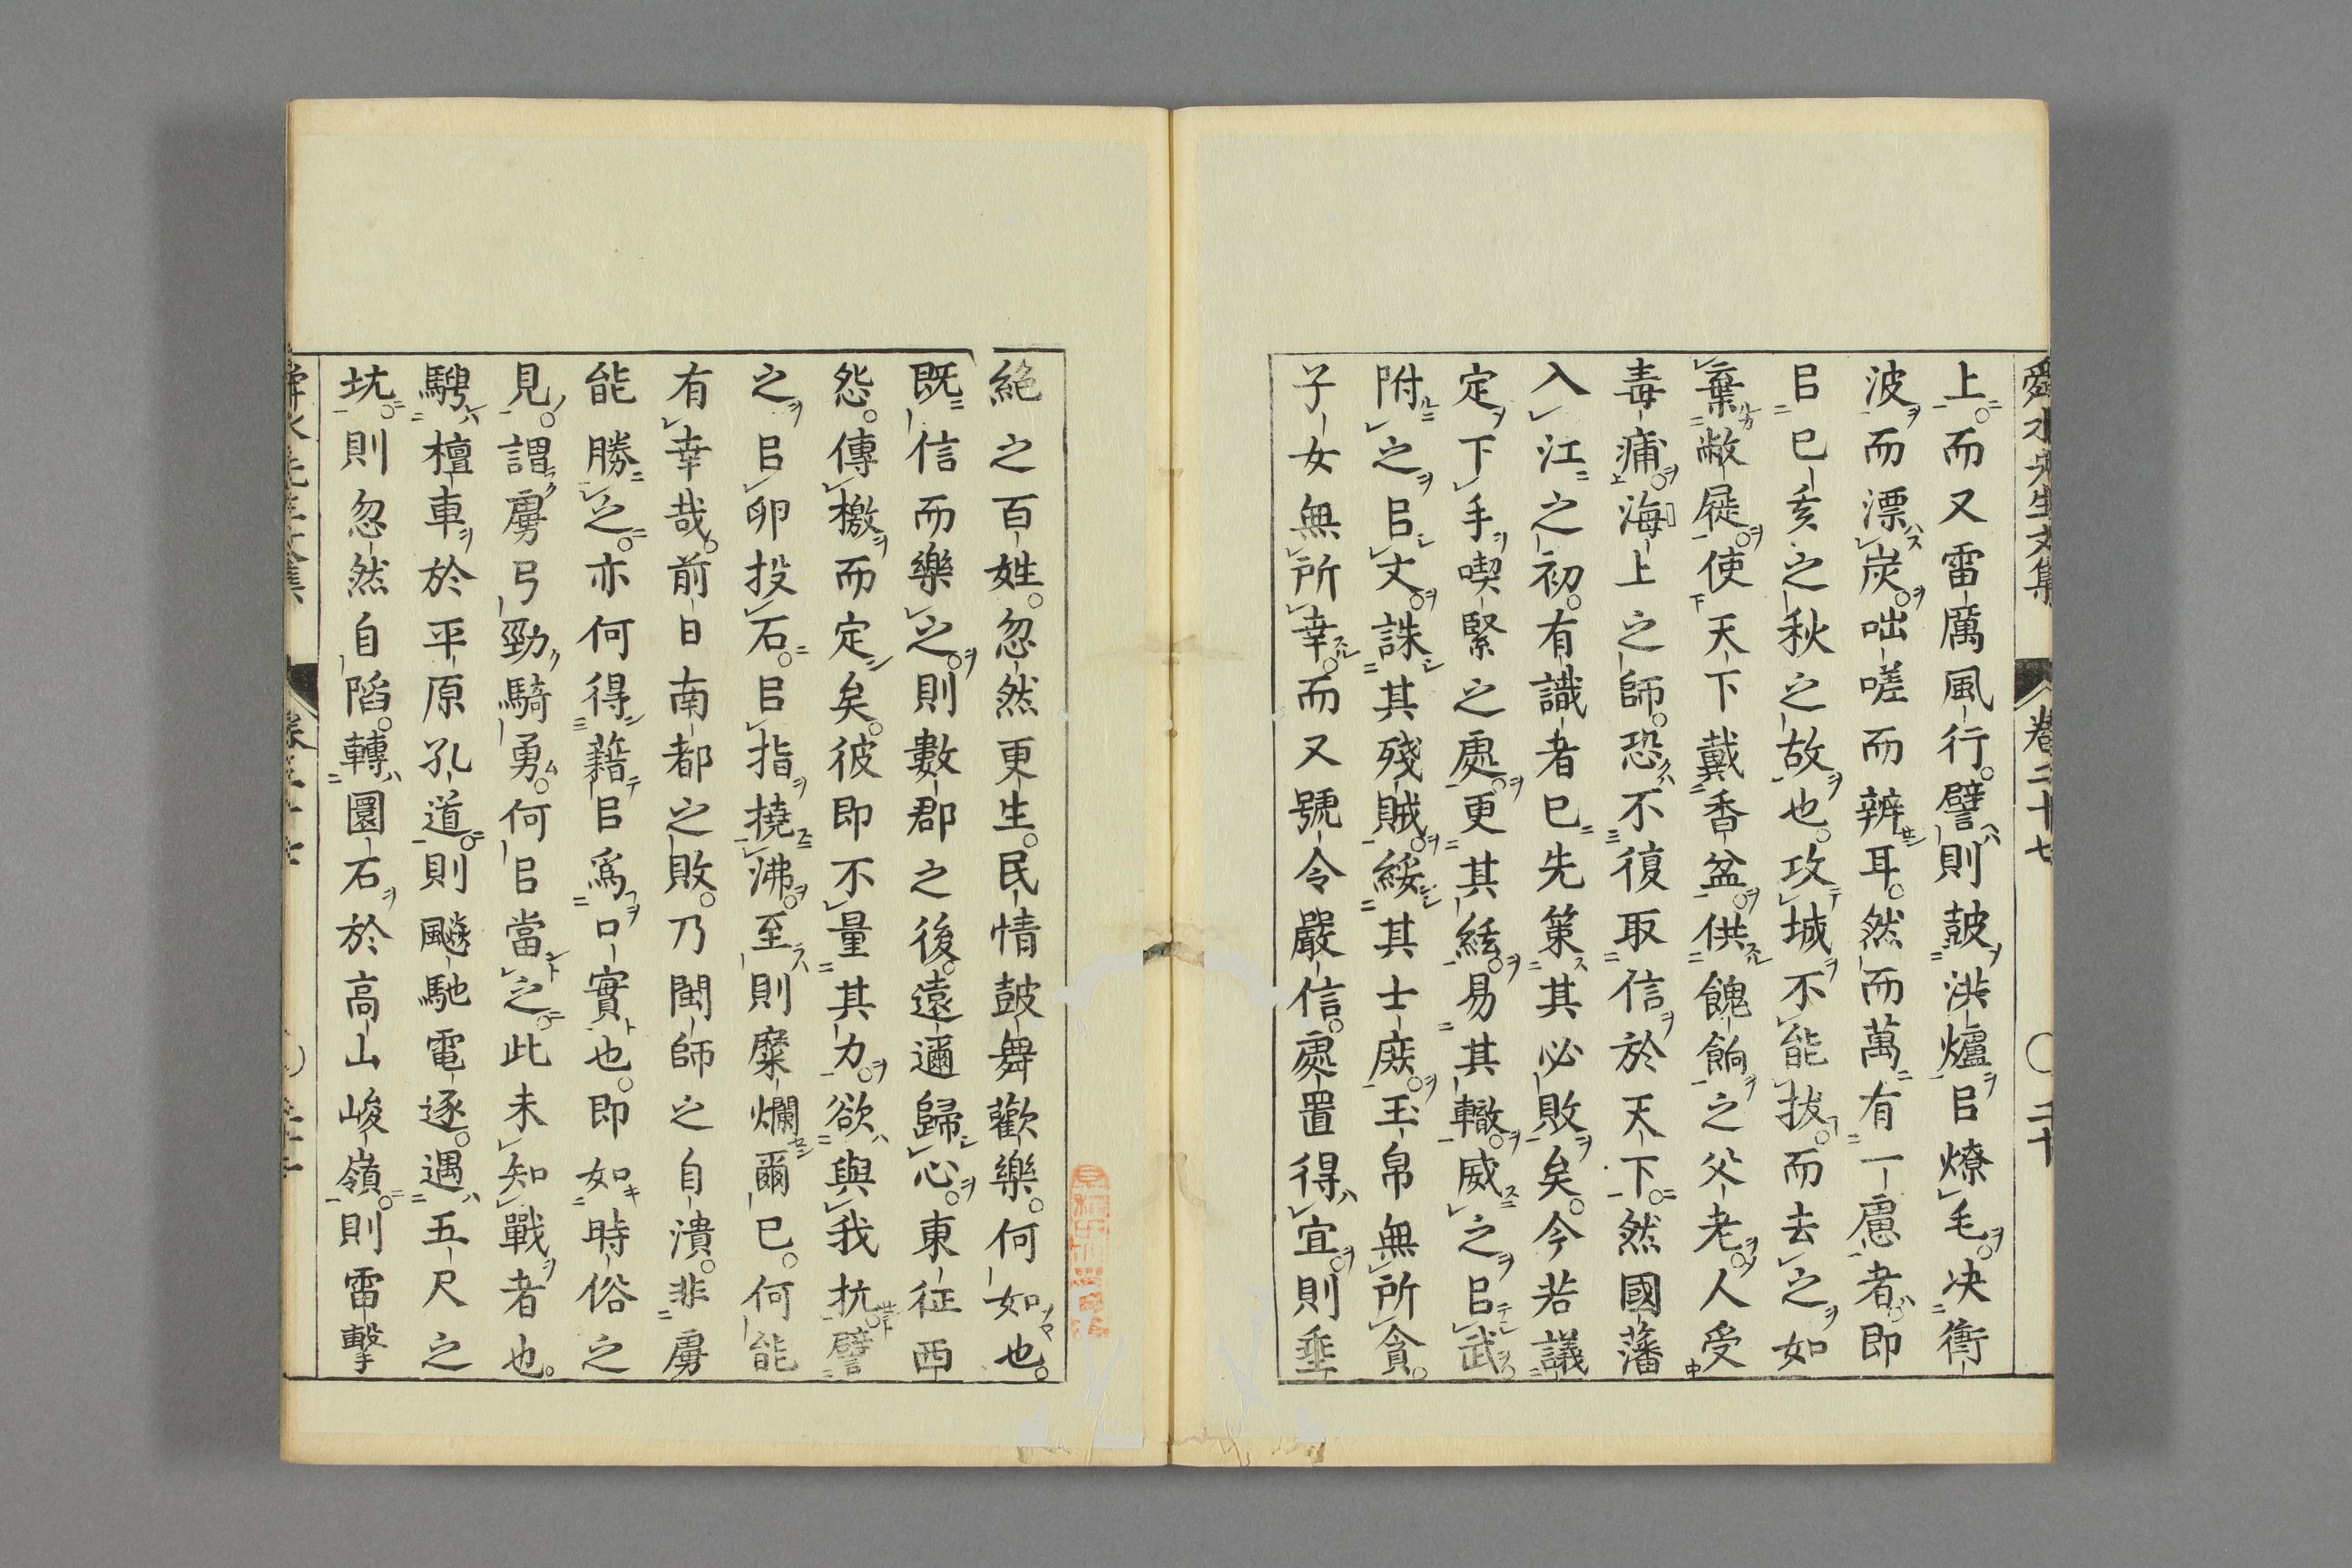 舜水先生文集 卷二十七 二十
上。而又雷厲風行。譬則鼓洪爐㠯燎毛。决衝
波而漂炭。咄嗟而辨耳。然而萬有一慮者。即
㠯已亥之秋之故也。攻城不能拔。而去之如
棄敝屣。使天下戴香盆。供餽餉之父老。人受
毒痡。海上之師。恐不復取信於天下。然國藩
入江之初。有識者已先策其必敗矣。今若議
定下手喫緊之處。更其絃。易其轍。威之㠯武
附之㠯丈。誅其殘賊。綏其士庻。玉帛無所貪。
子女無所幸。而又號令嚴信。處置得宜。則埀
絶之百姓。忽然更生。民情鼓舞歡樂。何如也。
既信而樂之。則數郡之後。遠邇歸心。東征西
怨。傳檄而定矣。彼即不量其力。欲與我抗。譬
之㠯卵投石。㠯指撓沸。至則糜爛爾已。何能
有幸哉。前日南都之敗。乃閩師之自潰。非虜
能勝之。亦何得藉㠯爲口實也。即如時俗之
見。謂虜弓勁騎勇。何㠯當之。此未知戰者也。
騁檀車於平原孔道。則飈馳電逐。遇五尺之
坑。則忽然自陷。轉圜石於高山峻嶺。則雷擊